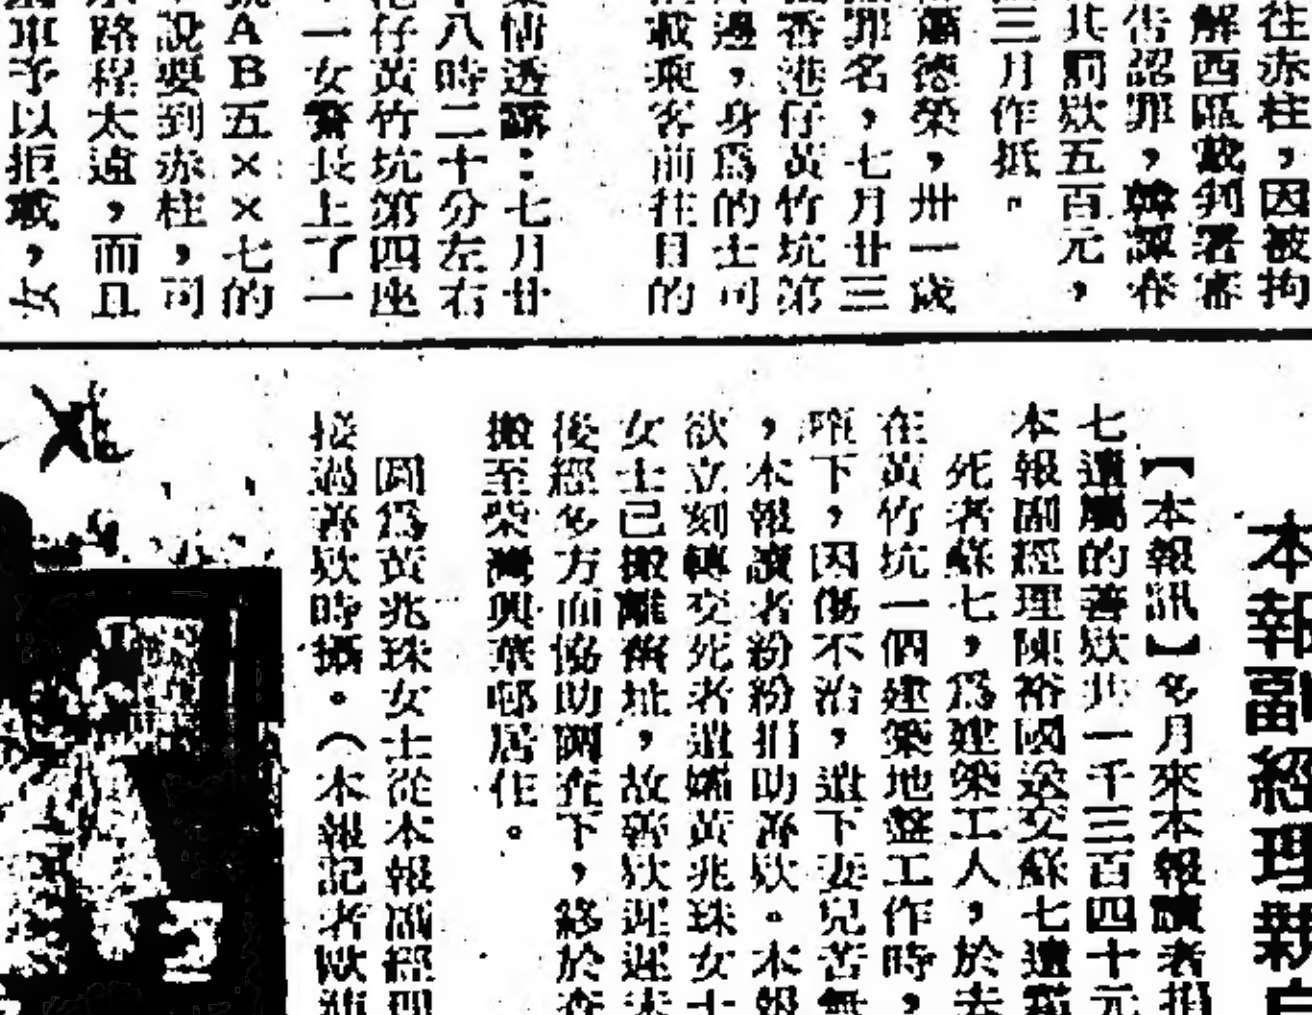 往赤柱，因被拘
解西區裁判署審
告認罪，韓譚春
共罰欵五百元，
三月作抵。
蕭德榮，卅一歲
罪名，七月廿三
香港仔黃竹坑第
邊，身爲的士司
載乘客前往目的
情透露：七月廿
八時二十分左右
仔黃竹坑第四座
一女警長上了一
AB五××七的
說要到赤柱，司
路程太遠，而且
車予以拒載，女
本報副經理親自
【本報訊】多月來本報讀者捐
七遺屬的善欵共一千三百四十元
本報副經理陳裕國送交蘇七遺孀
死者蘇七，爲建築工人，於去
在黃竹坑一個建築地盤工作時，
墮下，因傷不治，遺下妻兒苦無
，本報讀者紛紛捐助善欵。本報
欲立刻轉交死者遺孀黃兆珠女士
女士已搬離舊址，故善欵遲遲未
後經多方面協助調查下，終於查
搬至柴灣興華邨居住。
圖爲黃兆珠女士從本報副經理
接過善欵時攝。（本報記者歐